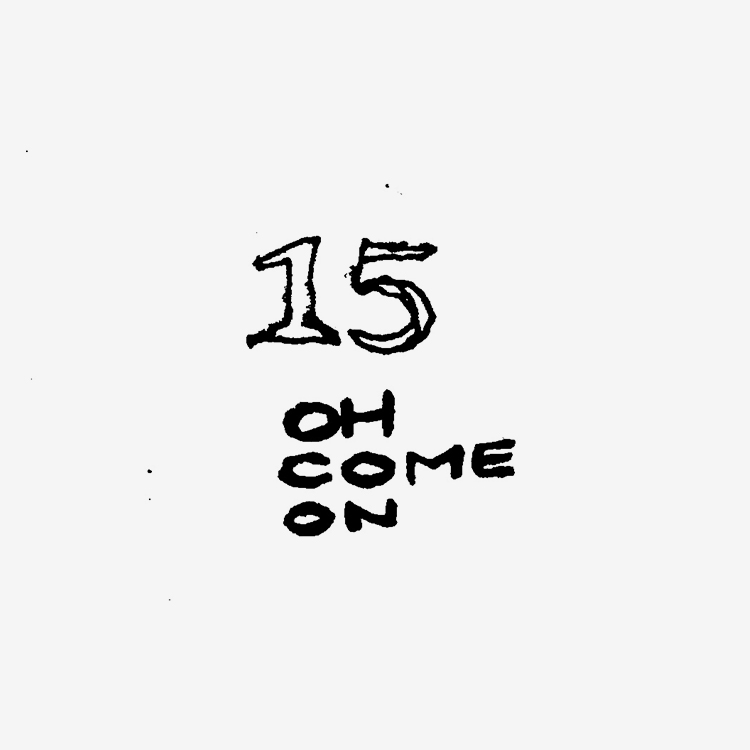 15
OH
COME
ON